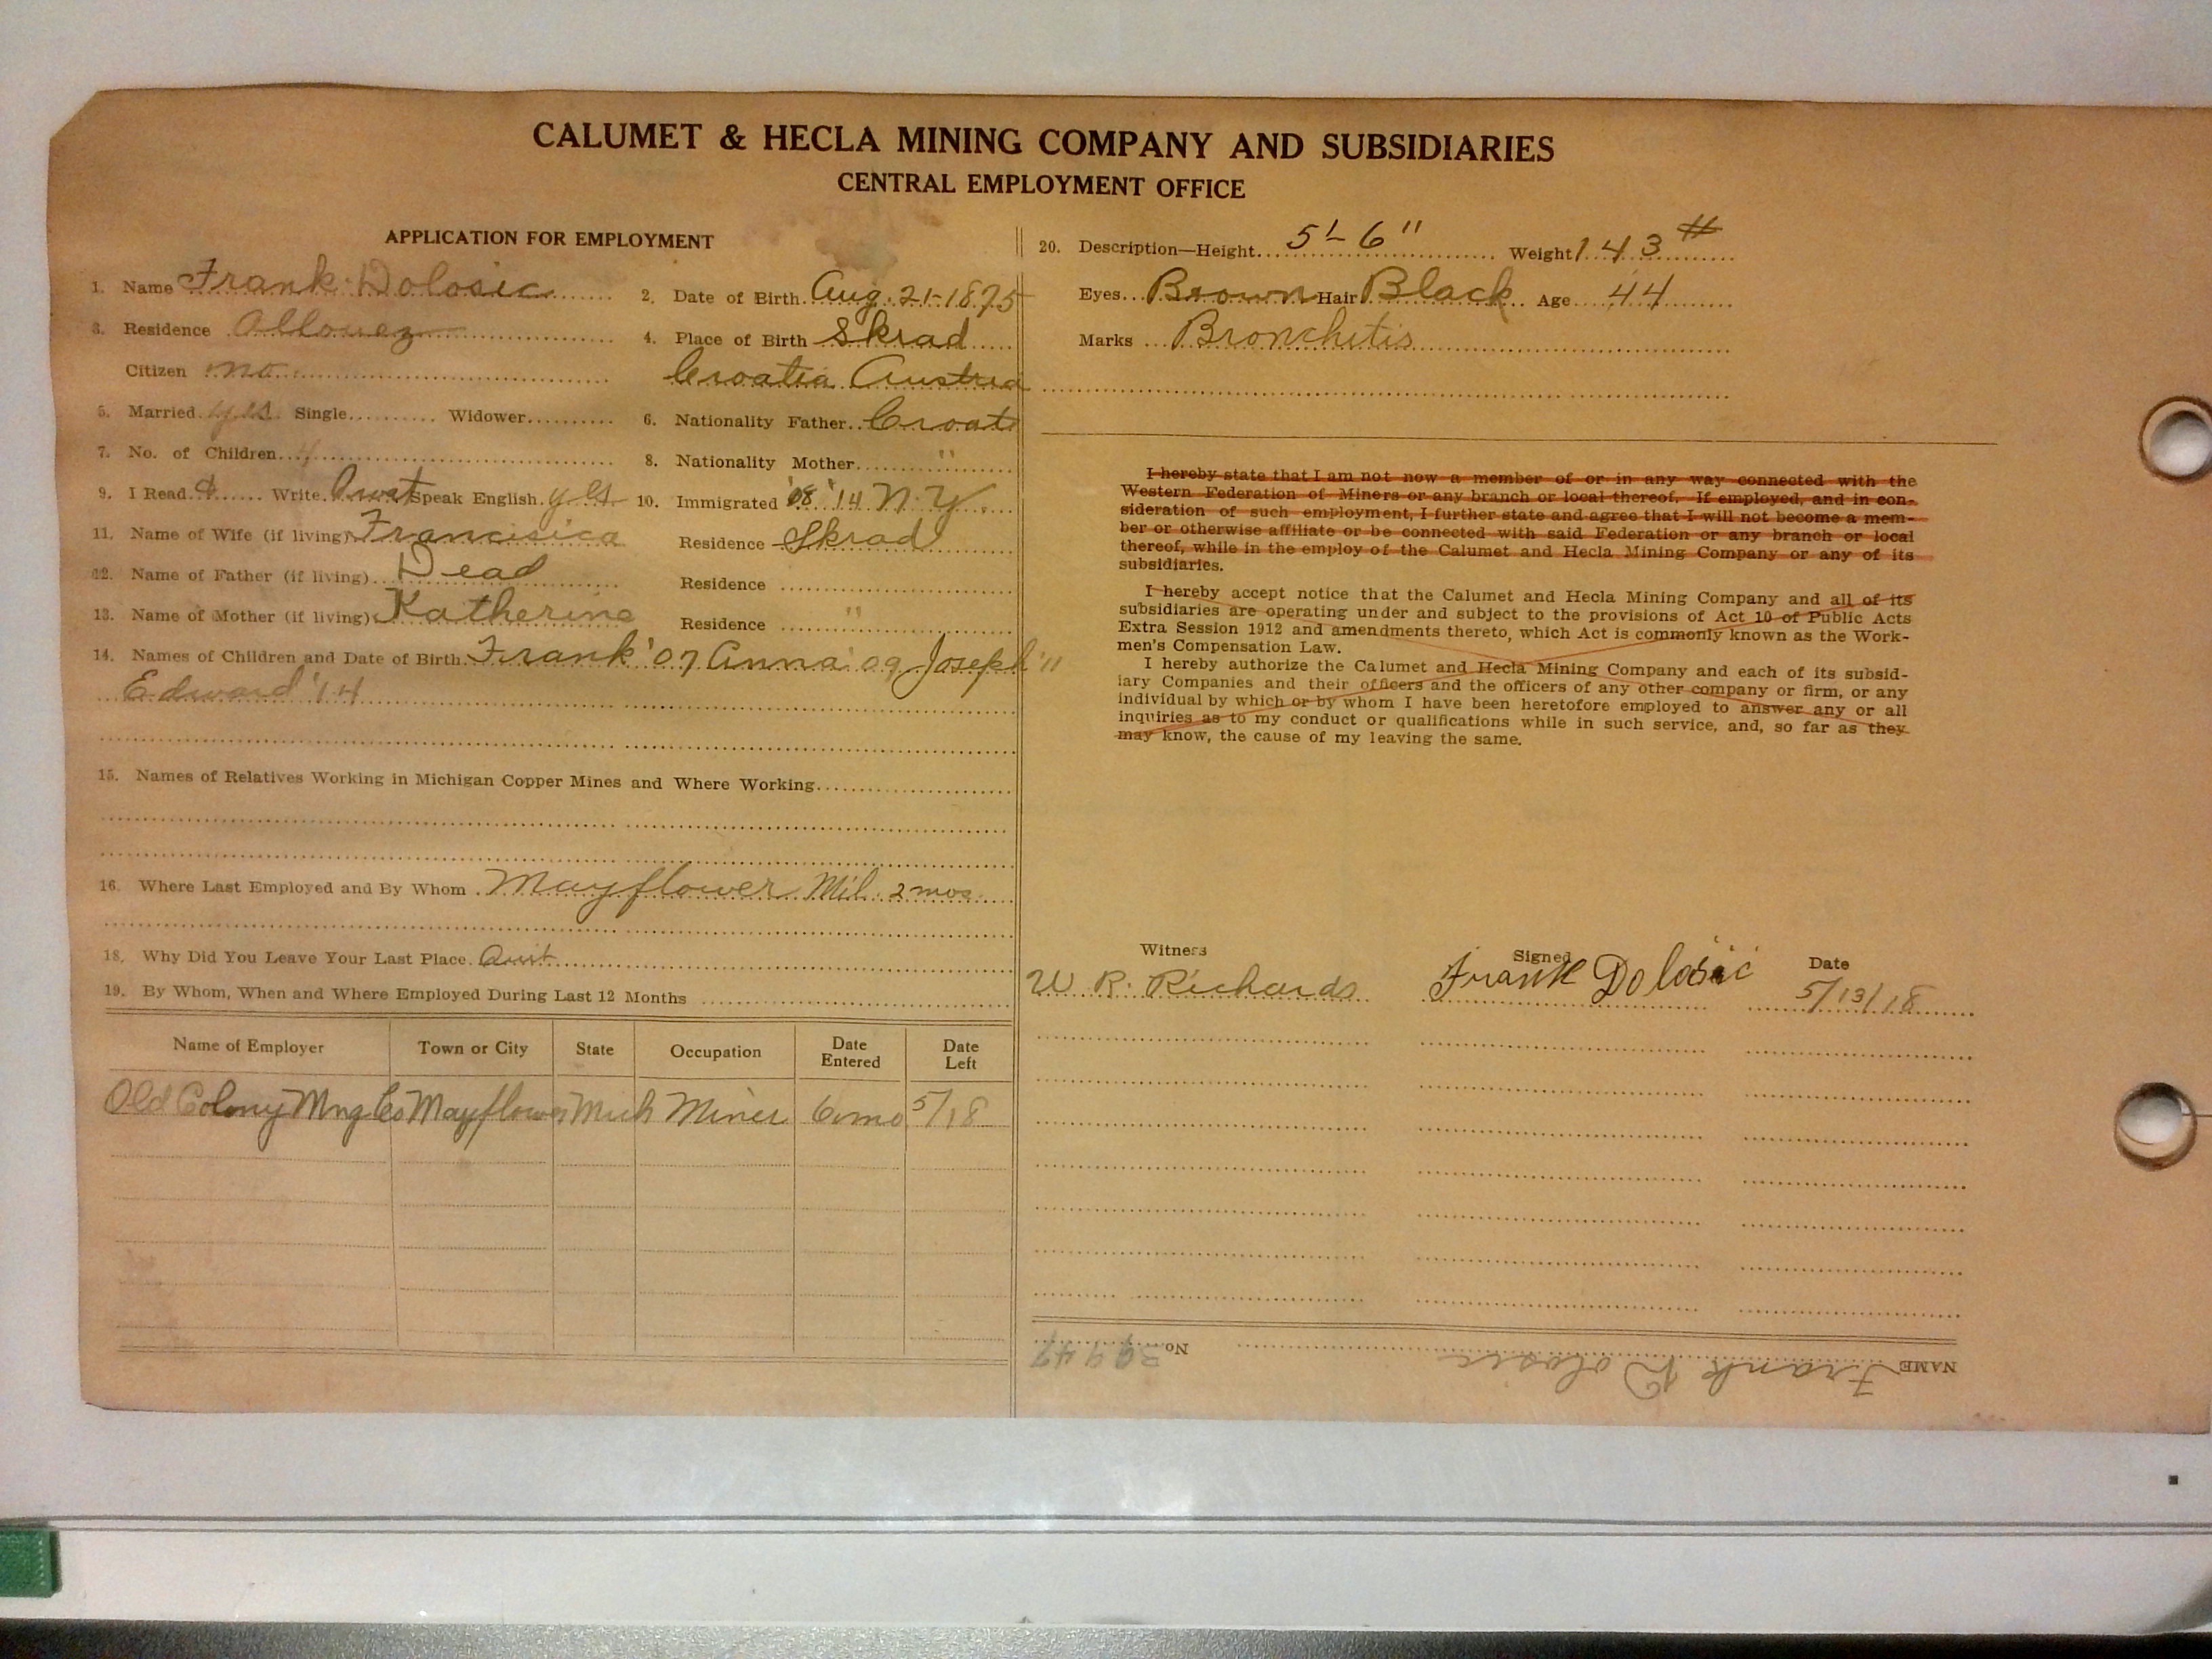 CALUMET & HECLA MINING COMPANY AND SUBSIDIARIES
CENTRAL EMPLOYMENT OFFICE
APPLICATION FOR EMPLOYMENT
1. Name Frank Dolosic
2. Date of Birth Aug. 21-1875
3. Residence Allouez
4. Place of Birth Skrad
Citizen no
Croatia Austria
5. Married yes Single Widower
6. Nationality Father Croat
7. No. of Children 4
8. Nationality Mother "
9. I Read & Write Speak English yes
10. Immigrated '08 '14 N.Y.
11. Name of Wife (if living) Francisica
Residence Skrad
12. Name of Father (if living) Dead
Residence
13. Name of Mother (if living) Katherine
Residence "
14. Names of Children and Date of Birth Frank '07 Anna '09 Joseph '11
Edward '14
15. Names of Relatives Working in Michigan Copper Mines and Where Working
16. Where Last Employed and By Whom Mayflower Mil. 2 mos
18. Why Did You Leave Your Last Place
19. By Whom, When and Where Employed During Last 12 Months
Name of Employer Town or City State Occupation Date Entered Date Left
Old Colony Mng Co Mayflower Mich Miner 6 mo 5/18
20. Description—Height 5'-6" Weight 143 #
Eyes Brown Hair Black Age 44
Marks Bronchitis
I hereby state that I am not now a member of or in any way connected with the
Western Federation of Miners or any branch or local thereof. If employed, and in con-
sideration of such employment, I further state and agree that I will not become a mem-
ber or otherwise affiliate or be connected with said Federation or any branch or local
thereof, while in the employ of the Calumet and Hecla Mining Company or any of its
subsidiaries.
I hereby accept notice that the Calumet and Hecla Mining Company and all of its
subsidiaries are operating under and subject to the provisions of Act 10 of Public Acts
Extra Session 1912 and amendments thereto, which Act is commonly known as the Work-
men's Compensation Law.
I hereby authorize the Calumet and Hecla Mining Company and each of its subsid-
iary Companies and their officers and the officers of any other company or firm, or any
individual by which or by whom I have been heretofore employed to answer any or all
inquiries as to my conduct or qualifications while in such service, and, so far as they
may know, the cause of my leaving the same.
Witness Signed Date
W. R. Richards Frank Dolosic 5/13/18
NAME Frank Dolosic No.